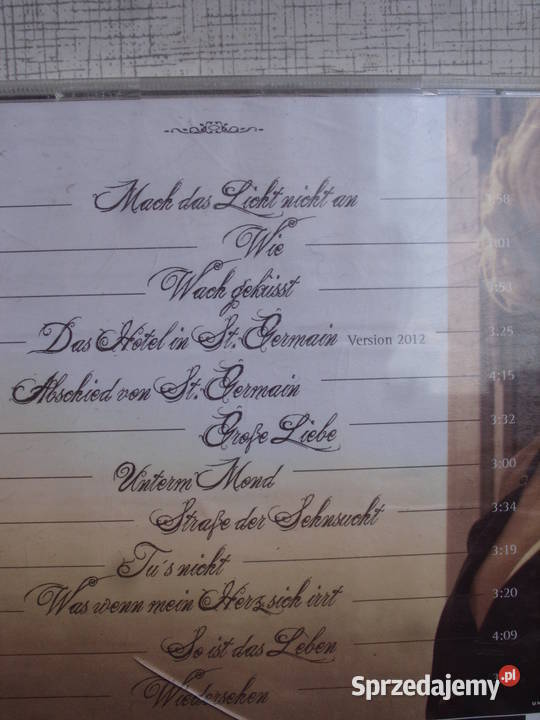 Mach das Licht nicht an :58
Wie :01
Wach geküsst 3:53
Das Hotel in St. Germain Version 2012 3:25
Abschied von St. Germain 4:15
Große Liebe 3:32
Unterm Mond 3:00
Straße der Sehnsucht 3:34
Tu's nicht 3:19
Was wenn mein Herz sich irrt 3:20
So ist das Leben 4:09
Wiedersehen
Sprzedajemy.pl